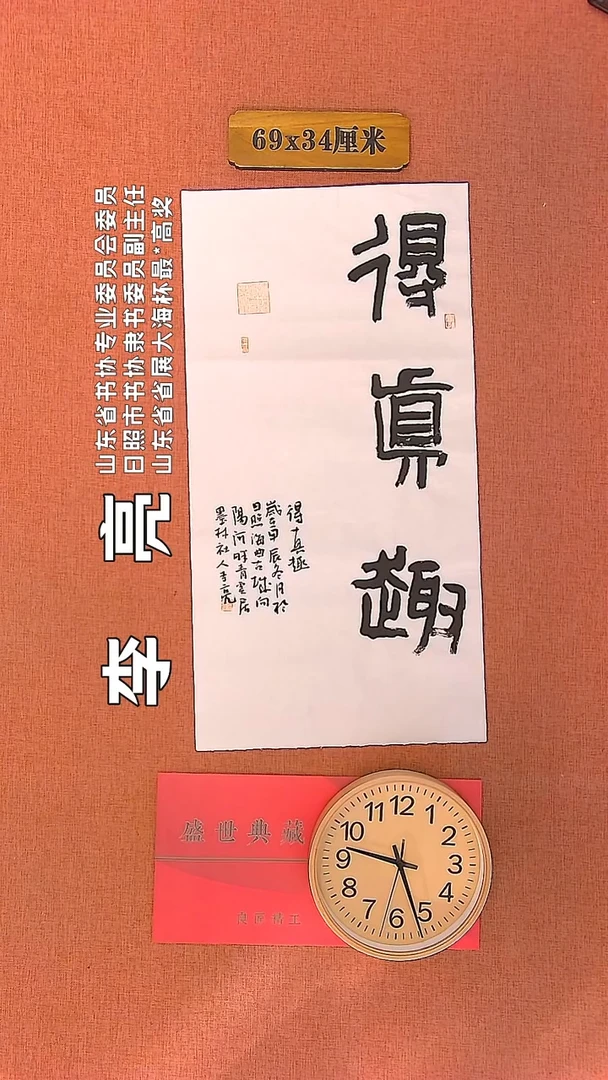 69x34厘米
山东省书协专业委员会委员
日照市书协隶书委员副主任
山东省省展大海杯最*高奖
李亮
得真趣
得真趣
歲在甲辰冬月於
日照海曲古城向
陽河畔青雲居
墨林社人李亮
盛世典藏
12
1
2
3
4
5
6
7
8
9
10
11